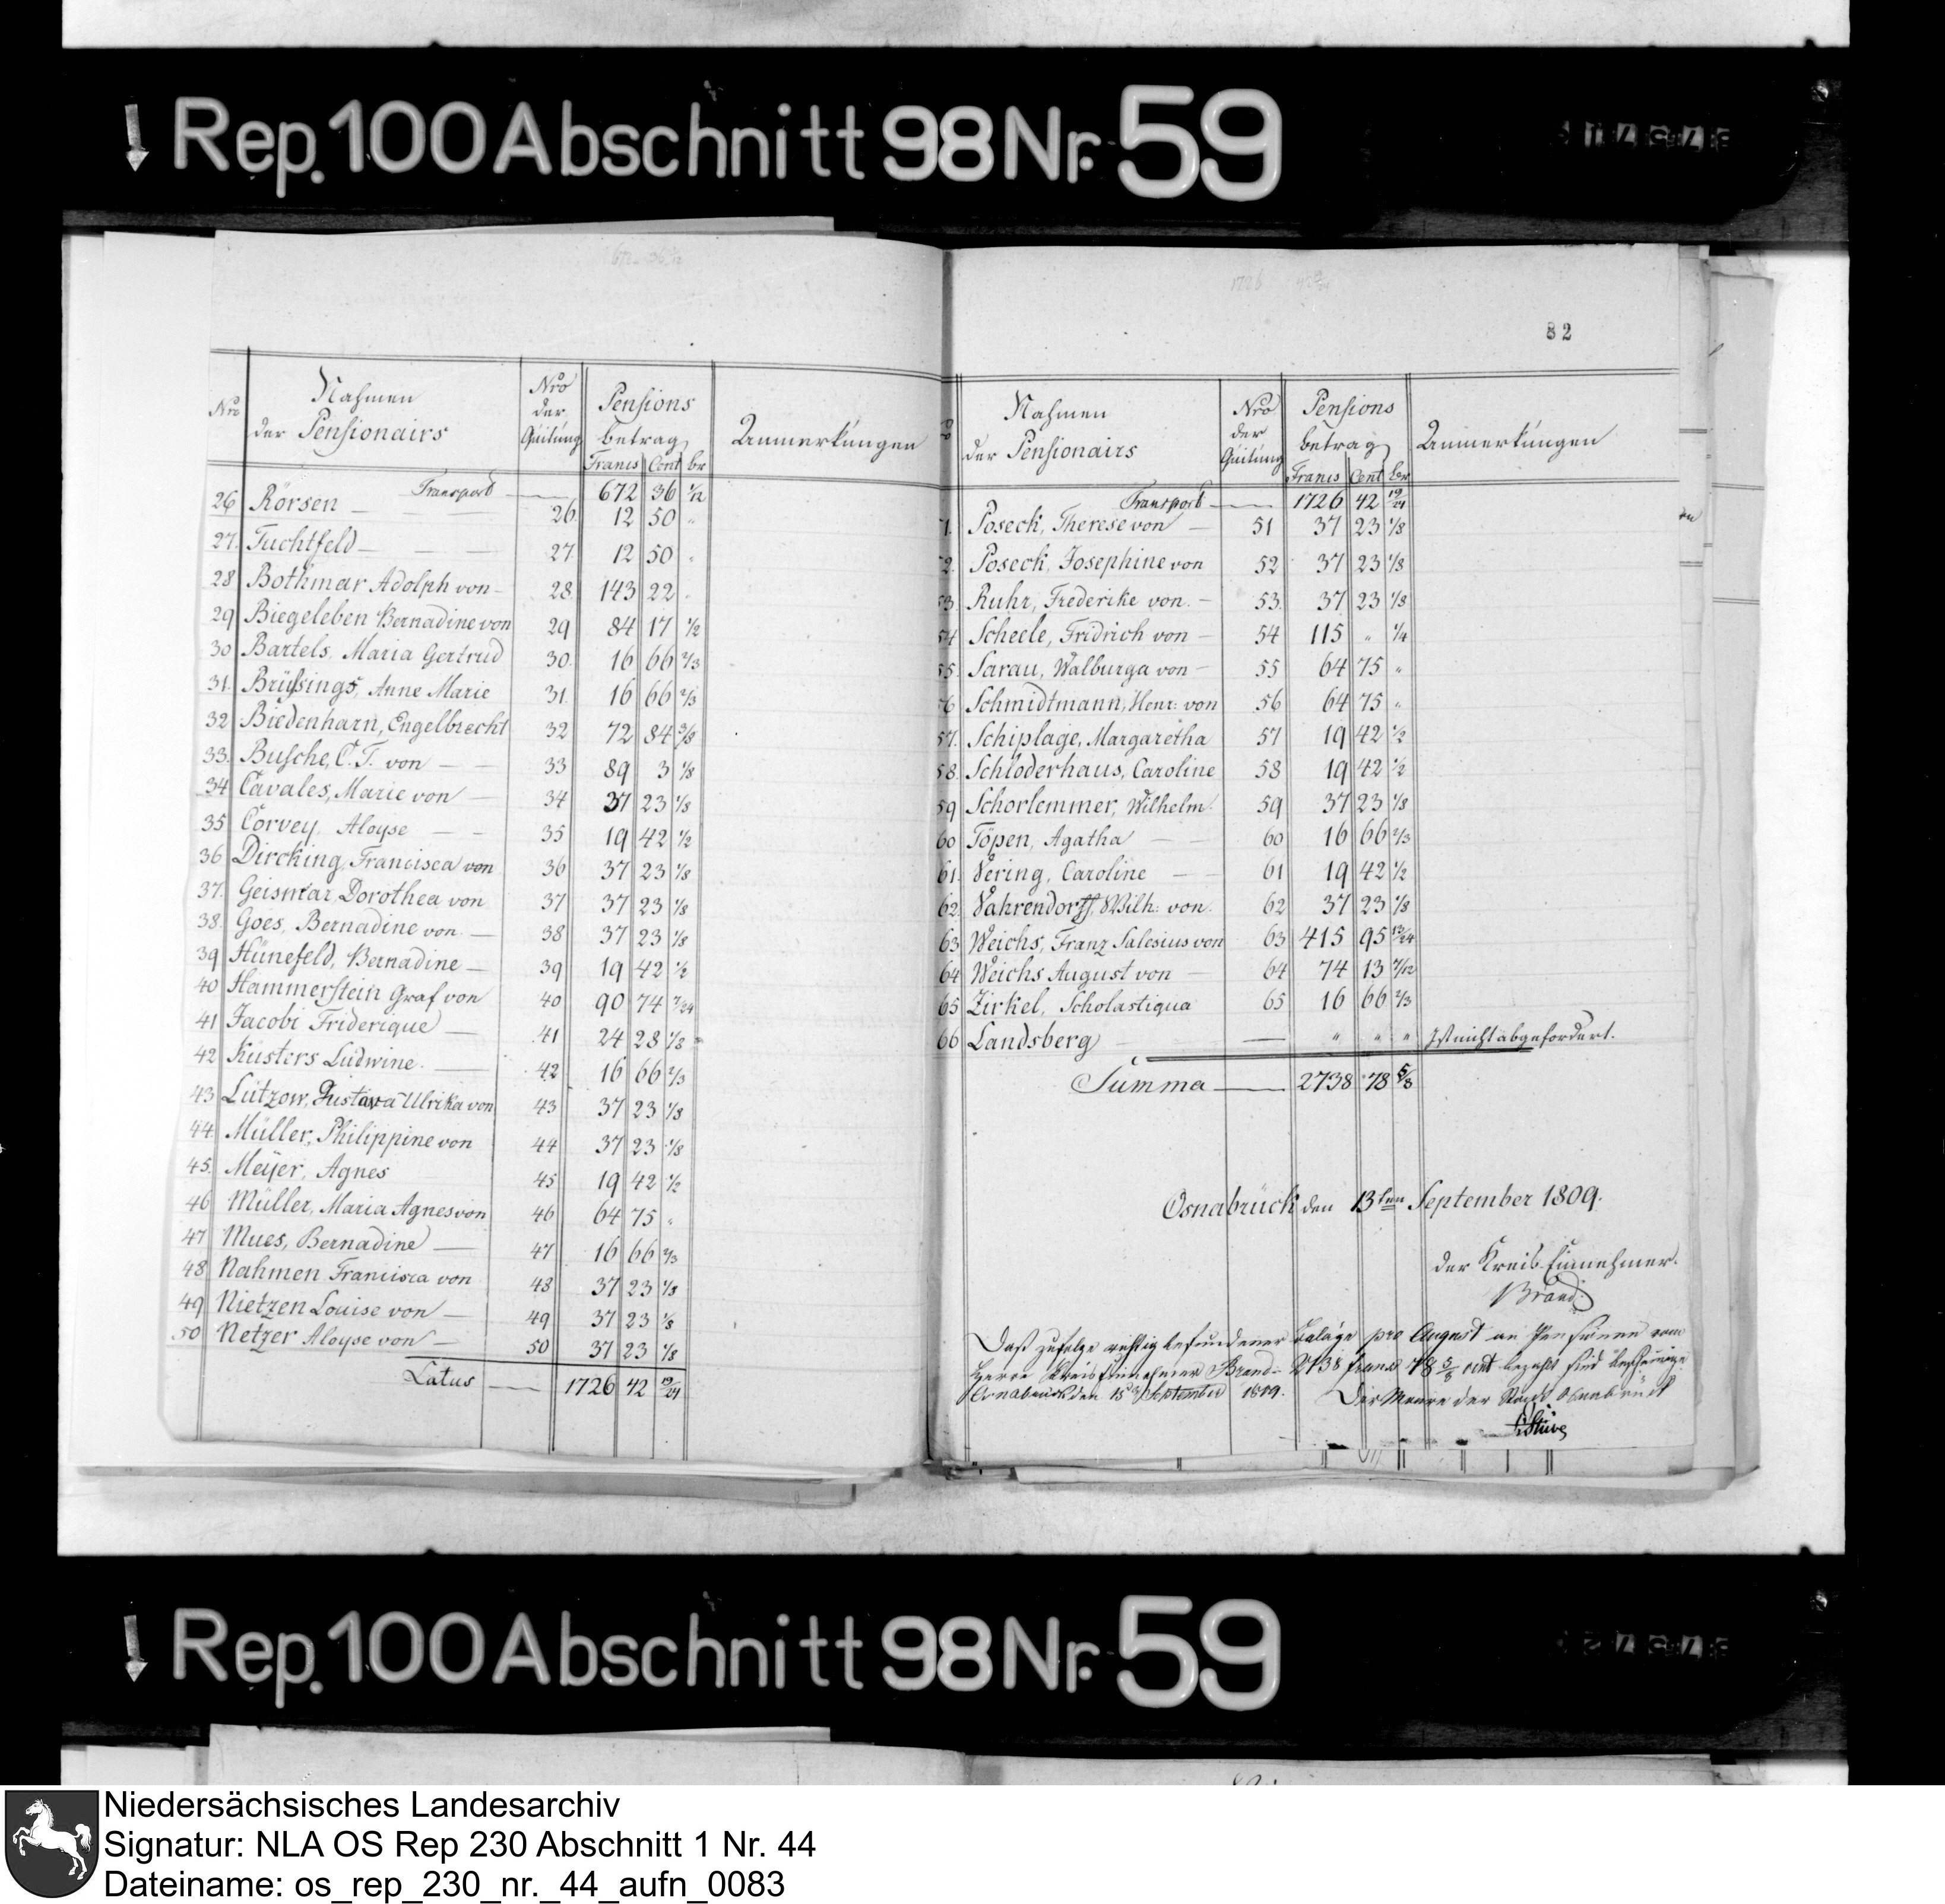 Rep. 100 Abschnitt 98 Nr. 59
82
Nro
Nahmen
der Pensionairs
Nro
der
Quitung
Pensions
betrag
Francs Cent br
Anmerkungen
Transport 672 36 1/12
26 Rörsen 26 12 50 "
27. Tuchtfeld 27 12 50 "
28 Bothmar Adolph von 28 143 22 "
29 Biegeleben Bernadine von 29 84 17 1/2
30 Bartels, Maria Gertrud 30 16 66 2/3
31. Brüssings, Anne Marie 31 16 66 2/3
32 Biedenharn, Engelbrecht 32 72 84 3/8
33. Busche, C. T. von 33 89 3 1/8
34 Cavales, Marie von 34 37 23 1/8
35 Corvey, Aloyse 35 19 42 1/2
36 Dircking, Francisca von 36 37 23 1/8
37. Geismar, Dorothea von 37 37 23 1/8
38. Goes, Bernadine von 38 37 23 1/8
39 Hünefeld, Bernadine 39 19 42 1/2
40 Hammerstein Graf von 40 90 74 7/24
41 Jacobi Friderique 41 24 28 1/8
42 Küsters Ludwine 42 16 66 2/3
43 Lützow, Gustava Ulrika von 43 37 23 1/8
44 Müller, Philippine von 44 37 23 1/8
45. Meÿer, Agnes 45 19 42 1/2
46 Müller, Maria Agnes von 46 64 75 "
47 Mues, Bernadine 47 16 66 2/3
48 Nahmen Francisca von 48 37 23 1/8
49 Nietzen Louise von 49 37 23 1/8
50 Netzer Aloyse von 50 37 23 1/8
Latus 1726 42 19/24
Nahmen
der Pensionairs
Nro
der
Quitung
Pensions
betrag
Francs Cent br
Anmerkungen
Transport 1726 42 19/24
Poseck, Therese von 51 37 23 1/8
Poseck, Josephine von 52 37 23 1/8
53. Ruhr, Frederike von 53. 37 23 1/8
54 Scheele, Fridrich von 54 115 " 1/4
55. Sarau, Walburga von 55 64 75 "
56 Schmidtmann, Henr: von 56 64 75 "
57. Schiplage, Margaretha 57 19 42 1/2
58. Schloderhaus, Caroline 58 19 42 1/2
59 Schorlemmer, Wilhelm 59 37 23 1/8
60 Töpen, Agatha 60 16 66 2/3
61. Vering, Caroline 61 19 42 1/2
62. Vahrendorff, Wilh: von 62 37 23 1/8
63 Weichs, Franz Salesius von 63 415 95 13/24
64 Weichs August von 64 74 13 7/12
65 Zirkel, Scholastiqua 65 16 66 2/3
66 Landsberg " " " Ist nicht abgefordert.
Summa 2738 78 5/8
Osnabrück den 13ten September 1809.
der Kreis Einnehmer.
Brand
Daß zufolge richtig befundener Beläge pro August an Pensionen vom
Herrn Kreis Einnehmer Brand 2738 francs 78 5/8 cent bezahlt sind bescheinige
Osnabrück den 15 September 1809.
Der Maire der Stadt Osnabrück
Stüve
Rep. 100 Abschnitt 98 Nr. 59
Niedersächsisches Landesarchiv
Signatur: NLA OS Rep 230 Abschnitt 1 Nr. 44
Dateiname: os_rep_230_nr._44_aufn_0083